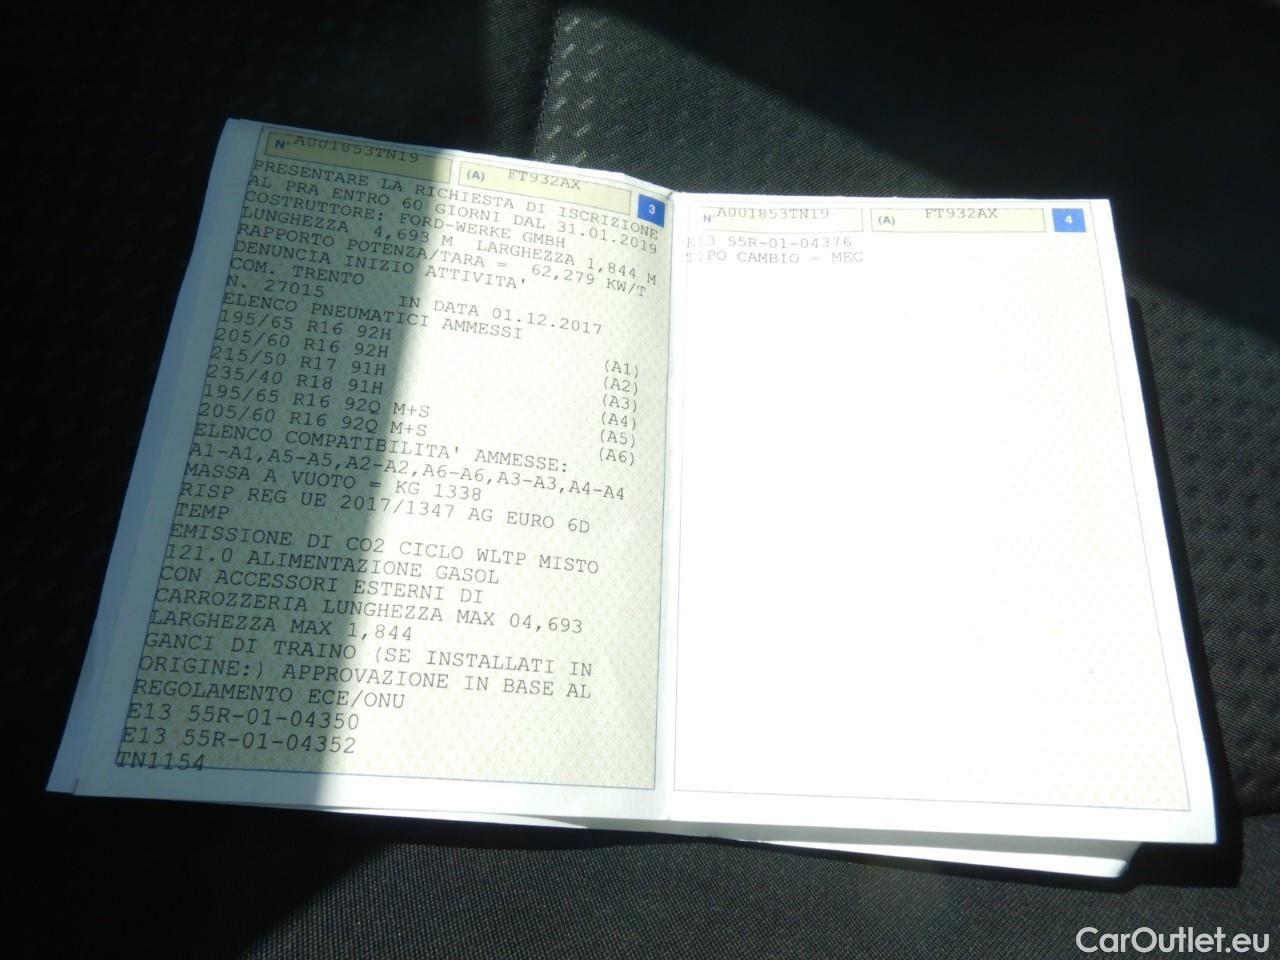 N° A001853TN19
(A) FT932AX
3
PRESENTARE LA RICHIESTA DI ISCRIZIONE
AL PRA ENTRO 60 GIORNI DAL 31.01.2019
COSTRUTTORE: FORD-WERKE GMBH
LUNGHEZZA 4,693 M LARGHEZZA 1,844 M
RAPPORTO POTENZA/TARA = 62,279 KW/T
DENUNCIA INIZIO ATTIVITA'
COM. TRENTO
N. 27015 IN DATA 01.12.2017
ELENCO PNEUMATICI AMMESSI
195/65 R16 92H (A1)
205/60 R16 92H (A2)
215/50 R17 91H (A3)
235/40 R18 91H (A4)
195/65 R16 92Q M+S (A5)
205/60 R16 92Q M+S (A6)
ELENCO COMPATIBILITA' AMMESSE:
A1-A1,A5-A5,A2-A2,A6-A6,A3-A3,A4-A4
MASSA A VUOTO = KG 1338
RISP REG UE 2017/1347 AG EURO 6D
TEMP
EMISSIONE DI CO2 CICLO WLTP MISTO
121.0 ALIMENTAZIONE GASOL
CON ACCESSORI ESTERNI DI
CARROZZERIA LUNGHEZZA MAX 04,693
LARGHEZZA MAX 1,844
GANCI DI TRAINO (SE INSTALLATI IN
ORIGINE:) APPROVAZIONE IN BASE AL
REGOLAMENTO ECE/ONU
E13 55R-01-04350
E13 55R-01-04352
TN1154
N° A001853TN19
(A) FT932AX
4
E13 55R-01-04376
TIPO CAMBIO = MEC
CarOutlet.eu